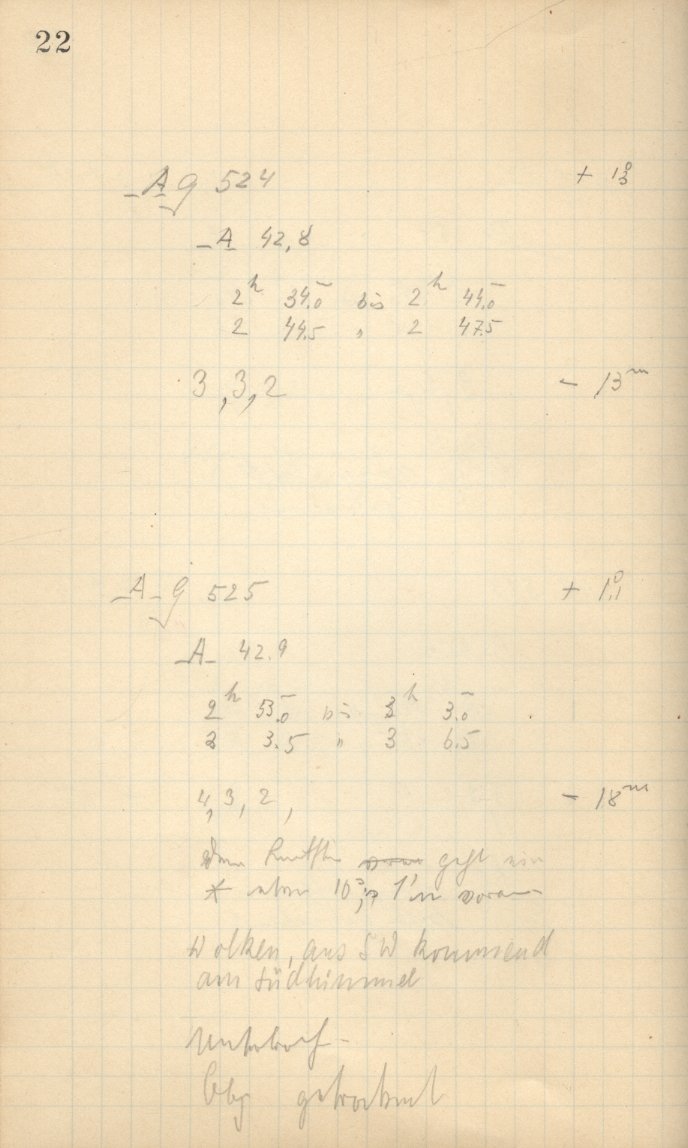 22
A g 524 + 1.3°
A 42,8
2h 34.0 bis 2h 44.0
2 44.5 " 2 47.5
3, 3, 2 - 13m
A g 525 + 1.1°
A 42.9
2h 53.0 bis 3h 3.0
3 3.5 " 3 6.5
4, 3, 2, - 18m
dem geht ein
* etwa 10s, 1' voran
Wolken, aus SW kommend
am Südhimmel
Obj getrocknet